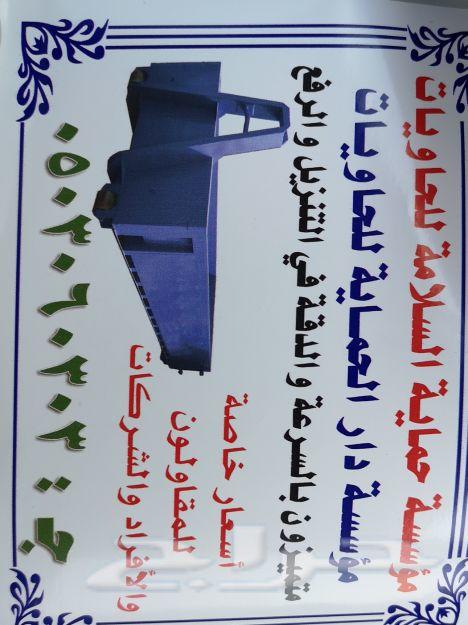 مؤسسة حماية السلامة للحاويات
مؤسسة دار الحماية للحاويات
متميزون بالسرعة والدقة في التنزيل والرفع
أسعار خاصة
للمقاولون
والأفراد والشركات
ج : ٠٥٠٣٠٦٠٣٠٣
حراج